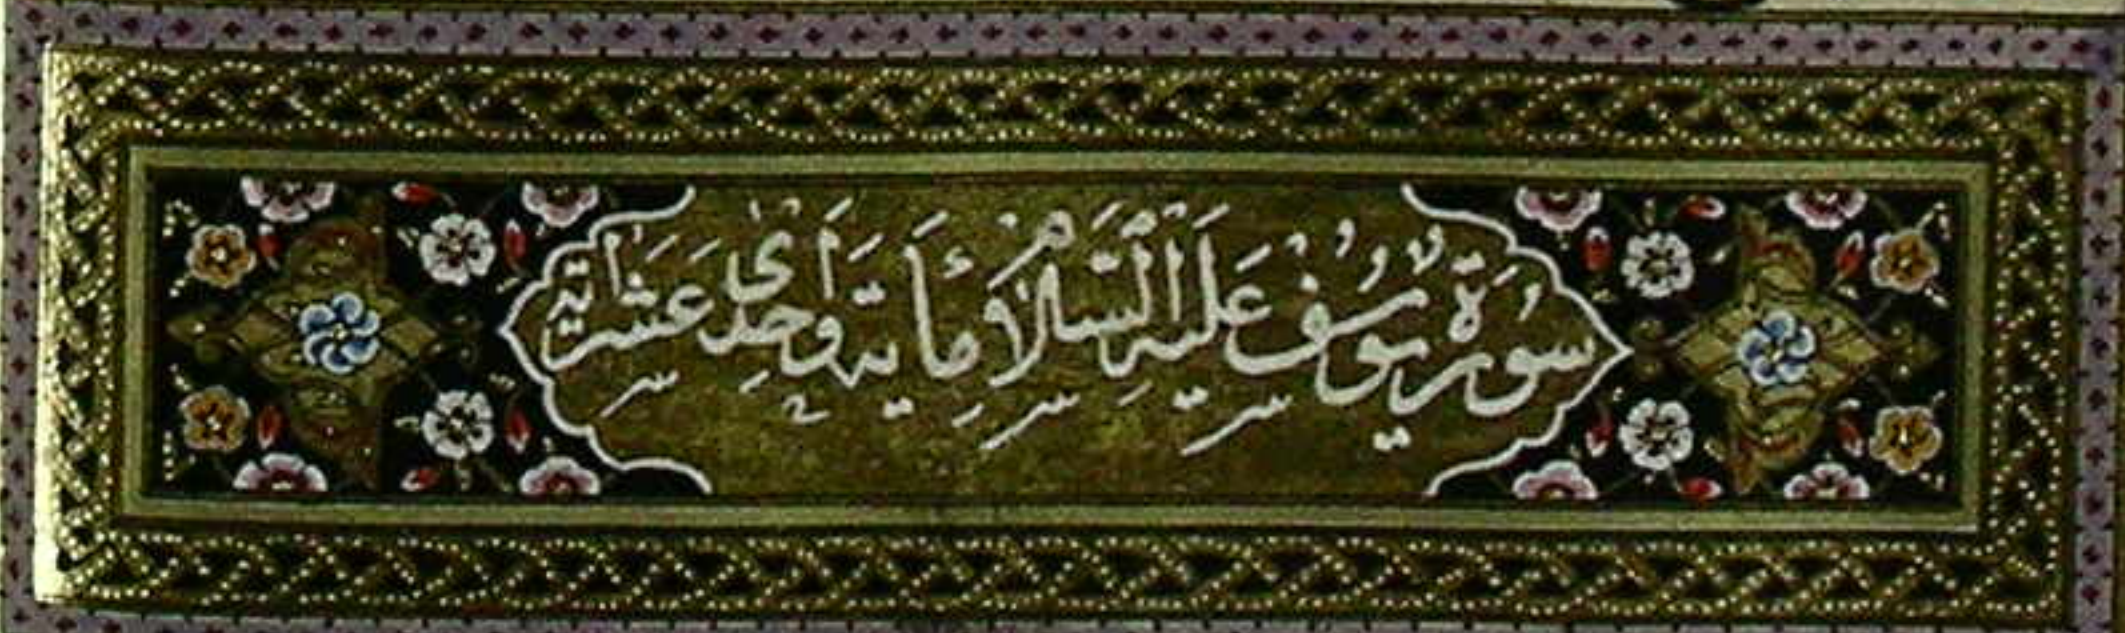 سورة يوسف عليه السلام مأية وأحدى عشر اية